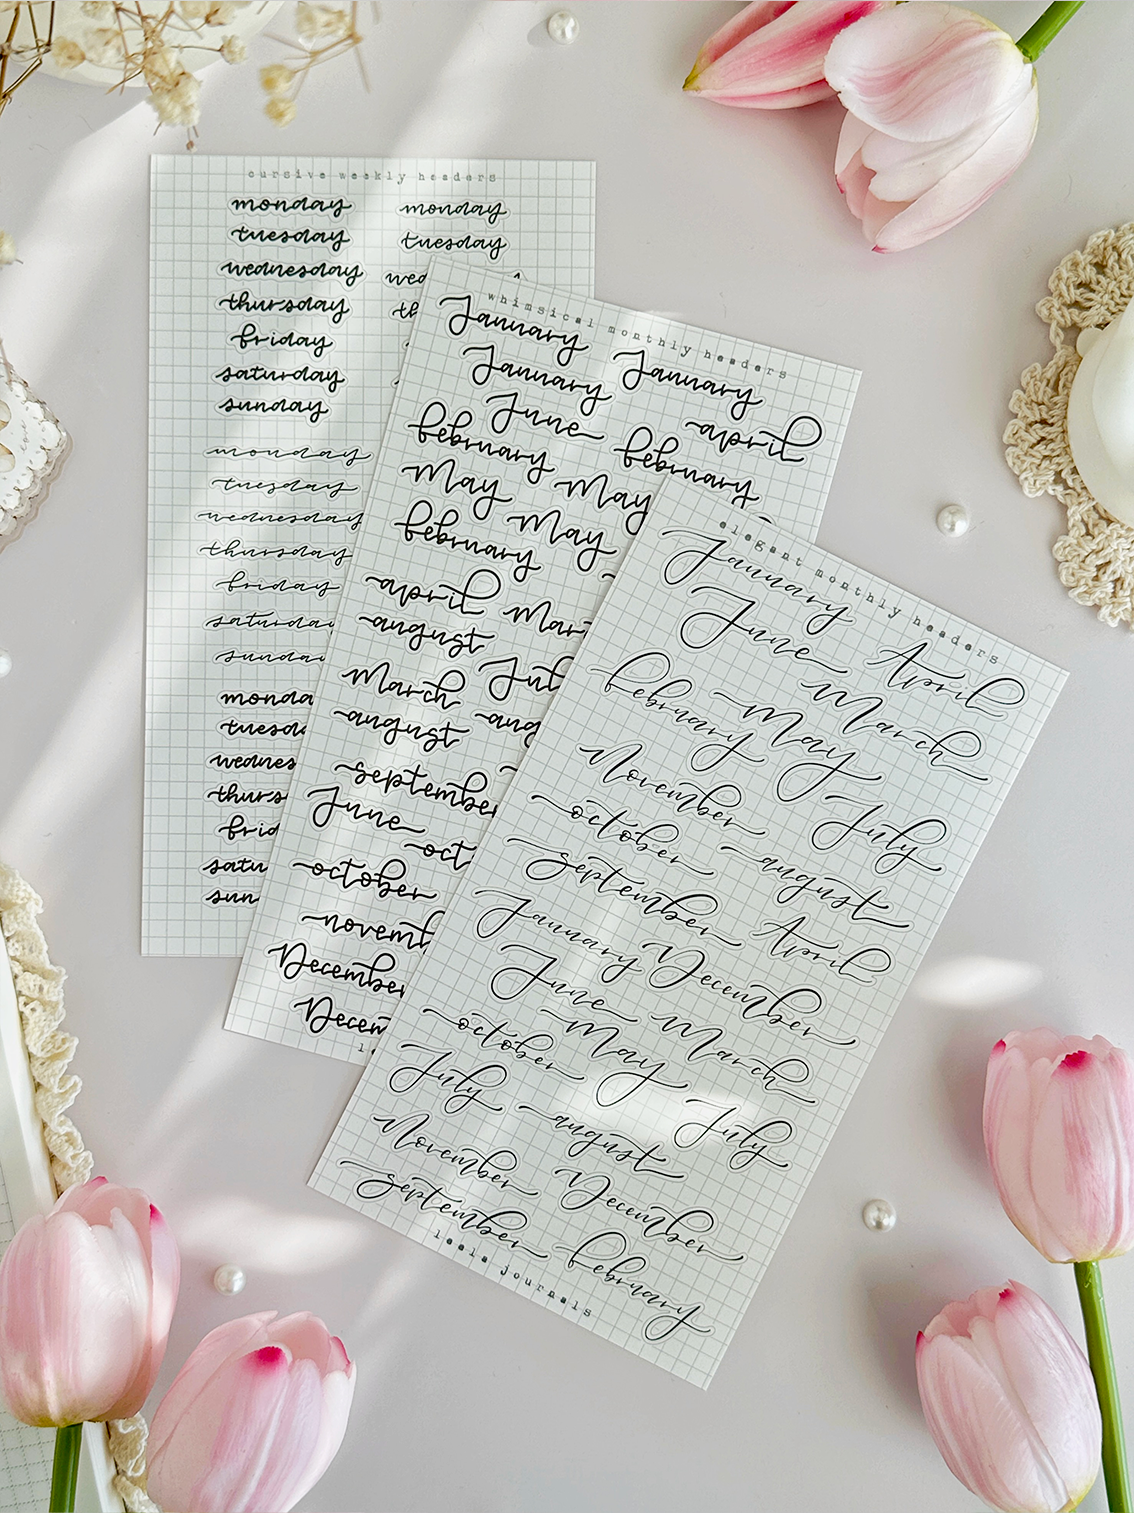 cursive weekly headers
monday monday
tuesday tuesday
wednesday
thursday
friday
saturday
sunday
monday
tuesday
wednesday
thursday
friday
saturday
sunday
whimsical monthly headers
January
January January
June april
february february
May May
february May
april
august
March
august
september
June
october
December
elegant monthly headers
January
June April
february May March
November July
october august
september April
January December
June March
october May
July august July
November December
september february
leela journals